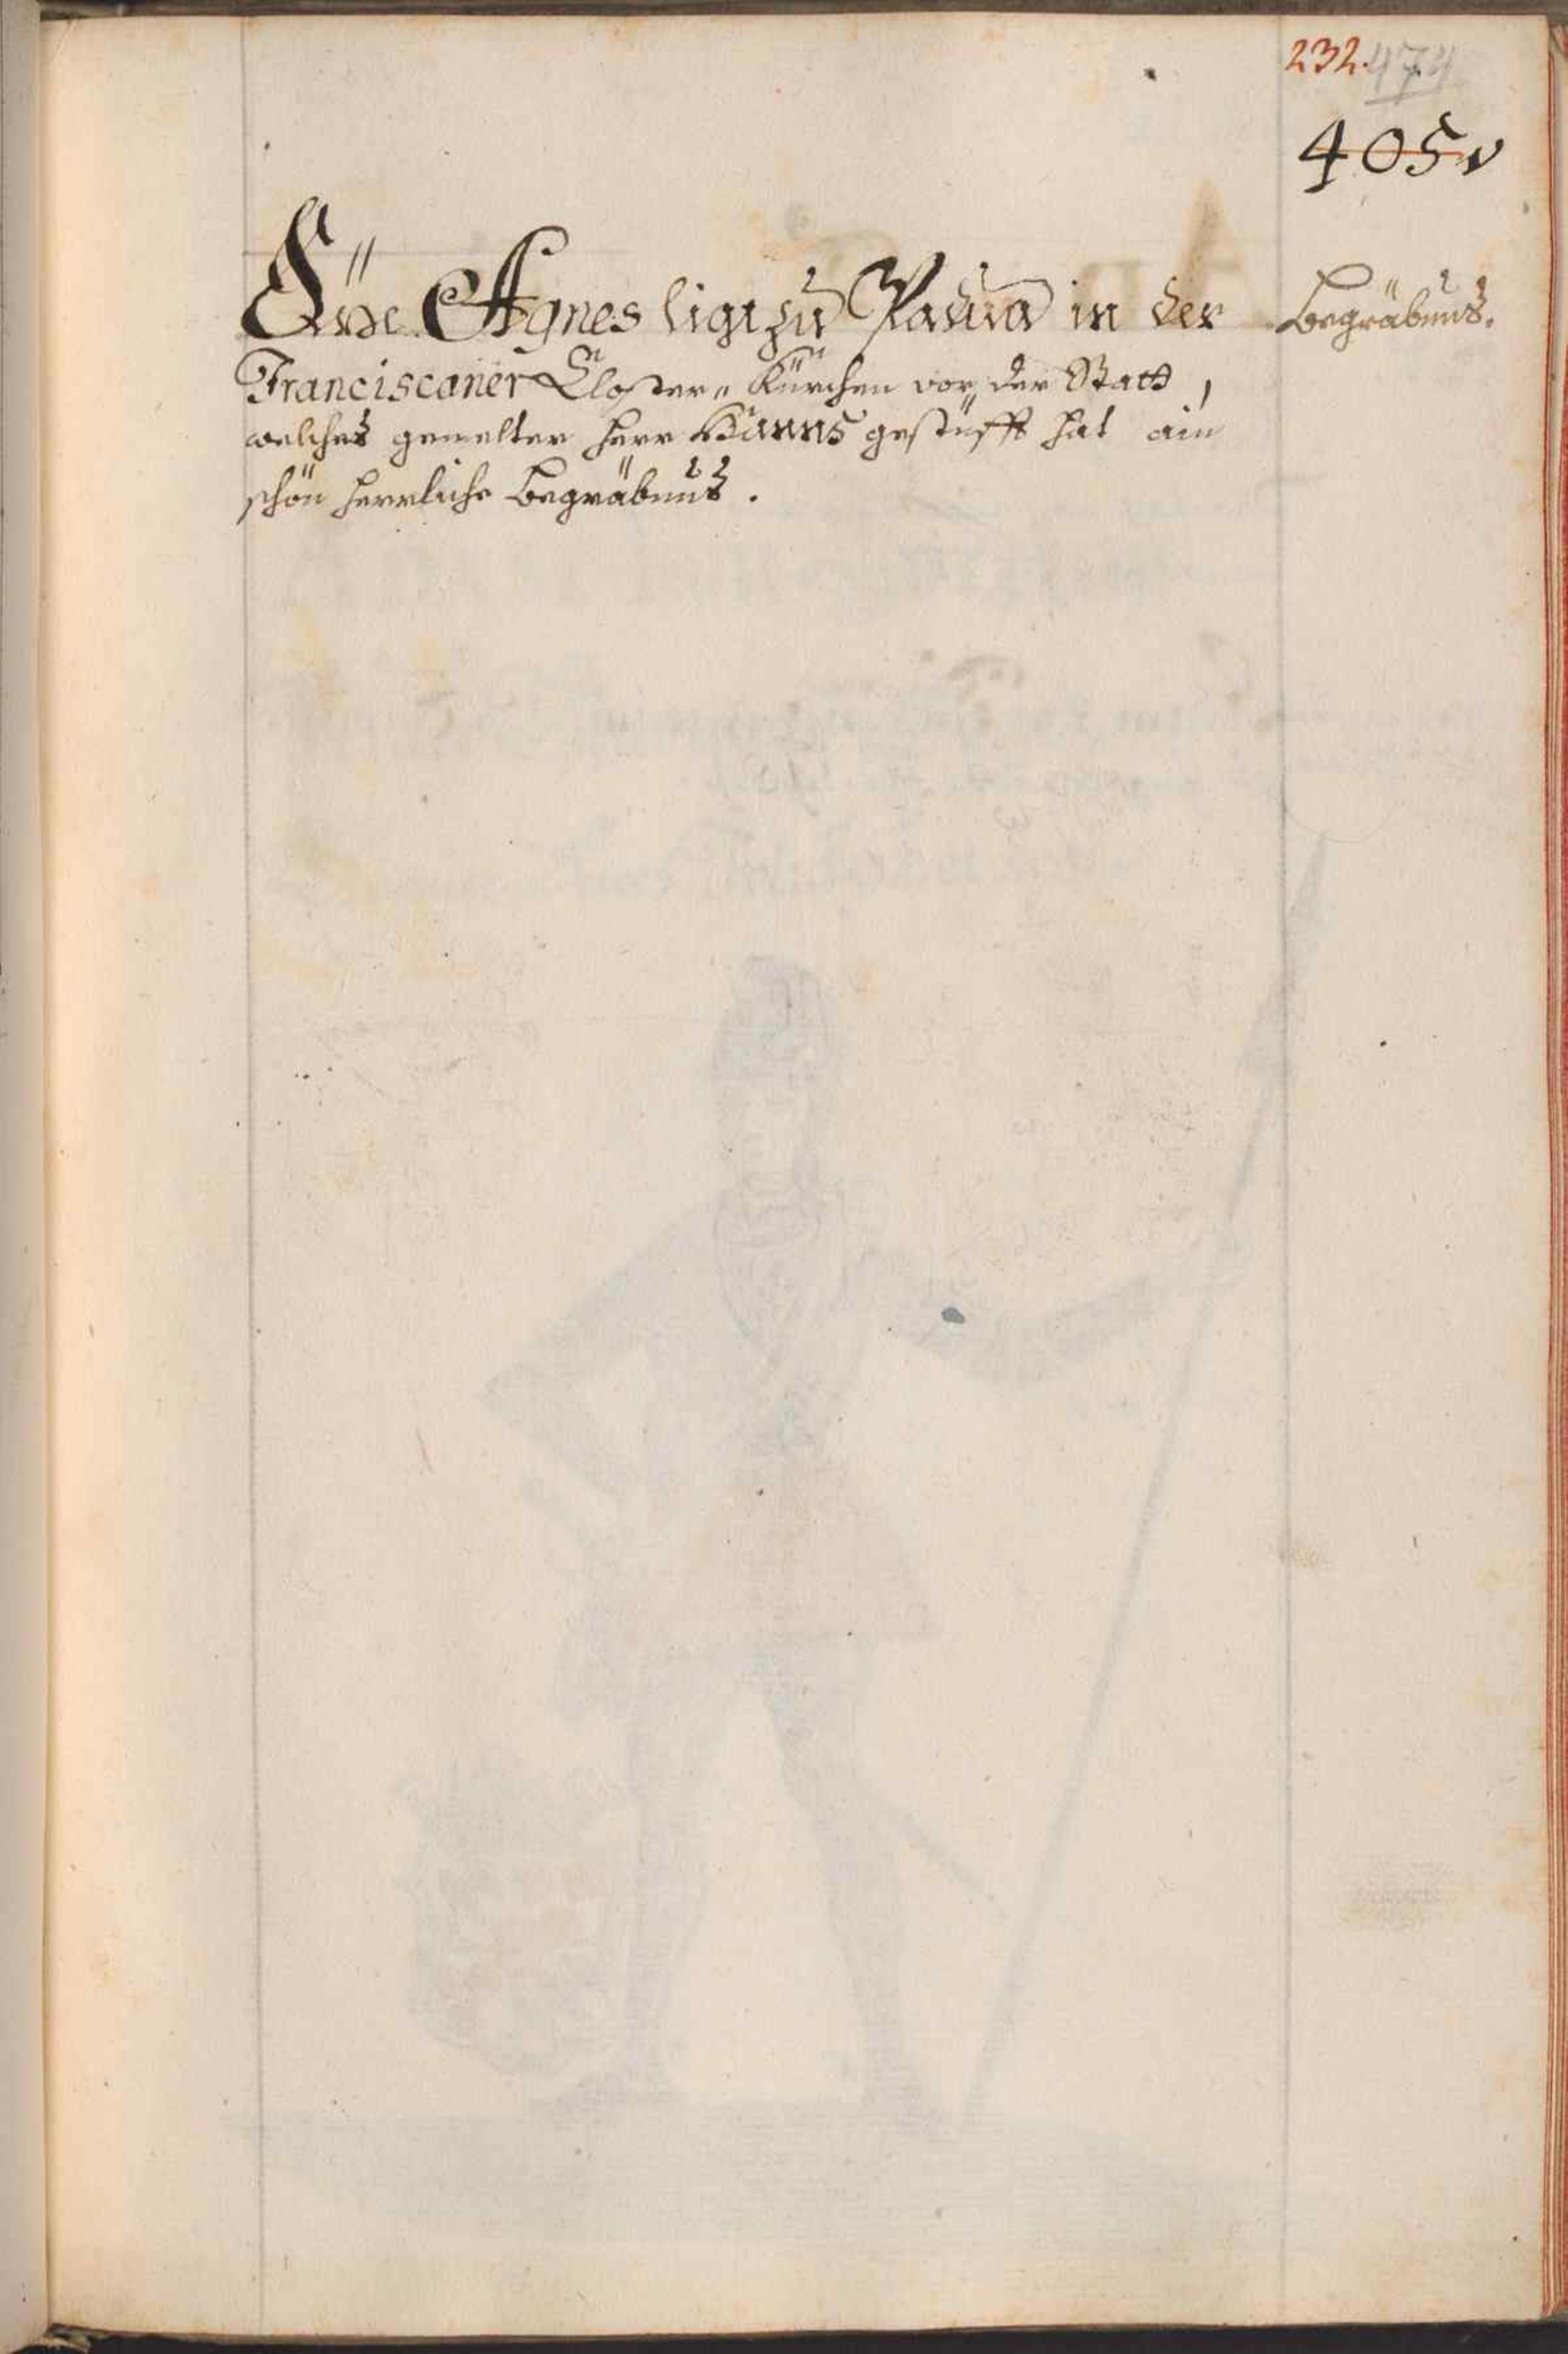 232. 474
405v
Dise Agnes ligt zu Padua in der
Begräbnus.
Franciscaner Closter-Kürchen vor der Statt,
welches gemelter Herr Hanns gestüfft hat ain
schön herrliche Begräbnus.